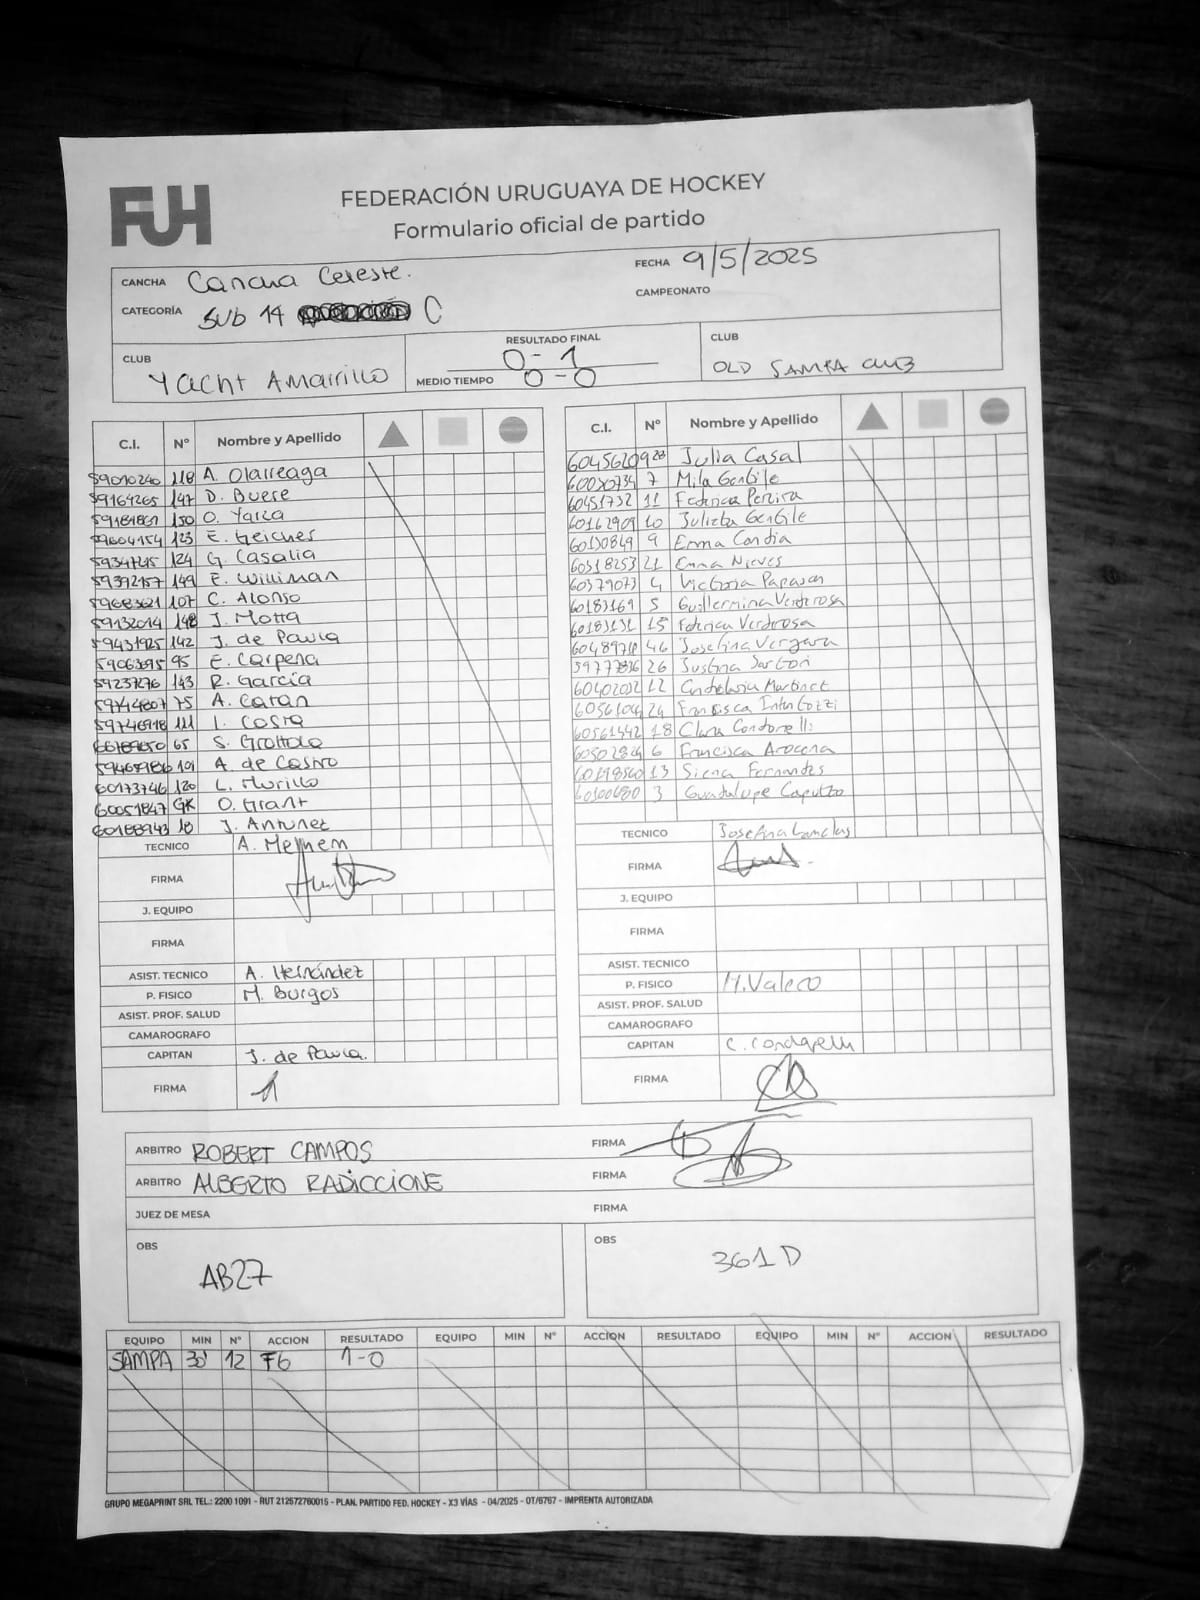 FUH
FEDERACIÓN URUGUAYA DE HOCKEY
Formulario oficial de partido
CANCHA Cancha Celeste.
FECHA 9/5/2025
CATEGORÍA SUB 14 C
CAMPEONATO
CLUB Yacht Amarrillo
RESULTADO FINAL 0-1
MEDIO TIEMPO 0-0
CLUB OLD SAMPA CLUB
C.I. Nº Nombre y Apellido
59010240 118 A. Olarreaga
59164265 147 D. Buere
150 O. Yarza
59604154 123 E. Geiches
124 G. Casalia
59392157 149 F. Williman
59683621 107 C. Alonso
59132014 148 J. Motta
59431925 142 J. de Paula
59063695 95 E. Carpena
59237276 143 R. García
75 A. Catan
59746918 111 L. Costa
65 S. Grottola
101 A. de Castro
60173746 120 L. Murillo
60051847 GK O. Grant
60188943 18 J. Antunez
TECNICO A. Meihem
FIRMA
J. EQUIPO
FIRMA
ASIST. TECNICO A. Hernández
P. FISICO M. Burgos
ASIST. PROF. SALUD
CAMAROGRAFO
CAPITAN J. de Paula.
FIRMA
C.I. Nº Nombre y Apellido
60456209 28 Julia Casal
60030734 7 Mila Gentile
60451732 11 Federica Pereira
60162909 10 Julieta Gentile
60130849 9 Emma Cardia
60318253 21 Emma Nieves
60379073 4 Victoria
60183169 5 Guillermina Verderosa
60183131 15 Federica Verderosa
46 Josefina Vergara
26 Justina Sartori
60402032 12 Candelaria Martinez
24 Francisca
60561442 18 Clara Condorelli
6 Francisca Arocena
13 Siena Fernandes
60300680 3 Guadalupe Caputto
TECNICO Josefina
FIRMA
J. EQUIPO
FIRMA
ASIST. TECNICO
P. FISICO M. Valero
ASIST. PROF. SALUD
CAMAROGRAFO
CAPITAN C. Condorelli
FIRMA
ARBITRO ROBERT CAMPOS FIRMA
ARBITRO ALBERTO RADICCIONE FIRMA
JUEZ DE MESA FIRMA
OBS AB27
OBS 361 D
EQUIPO MIN Nº ACCION RESULTADO EQUIPO MIN Nº ACCION RESULTADO EQUIPO MIN Nº ACCION RESULTADO
SAMPA 30' 12 FG 1-0
GRUPO MEGAPRINT SRL TEL.: 2200 1091 - RUT 212572760015 - PLAN. PARTIDO FED. HOCKEY - X3 VÍAS - 04/2025 - OT/6767 - IMPRENTA AUTORIZADA